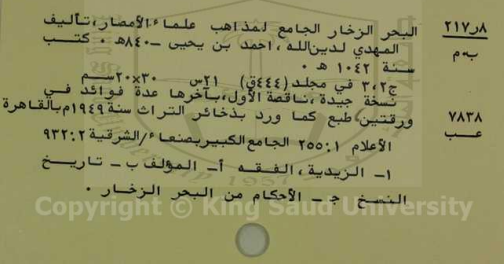 ٢١٧ر٨ البحر الزخار الجامع لمذاهب علماء الأمصار، تأليف
ب٠م المهدي لدين الله، احمد بن يحيى -٨٤٠ه ٠ كتب
سنة ١٠٤٢ ه ٠
ج٢،٣ في مجلد (٤٤٤ق) ٢١س ٣٠×٢٠سم
نسخة جيدة، ناقصة الأول، بآخرها عدة فوائد في
٧٨٣٨ ورقتين طبع كما ورد بذخائر التراث سنة ١٩٤٩م بالقاهرة
عب الأعلام ١: ٢٥٥ الجامع الكبير بصنعاء/الشرقية ٢: ٩٣٢
١- الزيدية، الفقه أ- المؤلف ب- تاريخ
النسخ ج- الأحكام من البحر الزخار ٠
Copyright © King Saud University
1957